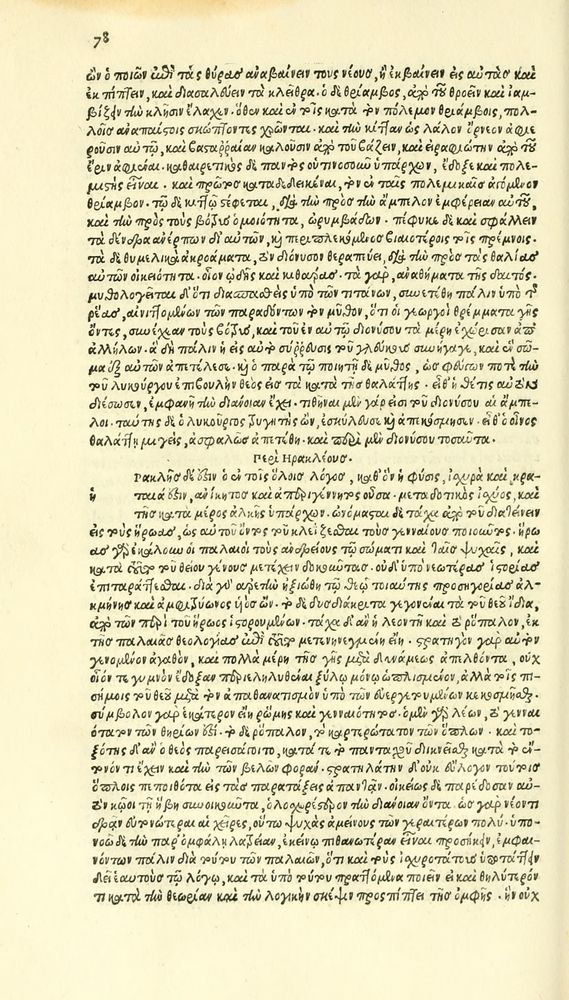 78
ὧν ὁ ποιῶν ἐπὶ τὰς θύρας ἀναβαίνειν τοὺς νέους, ἢ ἐκβαίνειν εἰς αὐτὰς καὶ
ἐκπίπτειν, καὶ διασαλεύειν τὰ κλεῖθρα. ὁ δὲ θρίαμβος, ἀπὸ τοῦ θροεῖν καὶ ἰαμ-
βίζειν τὴν κλῆσιν ἔλαχεν. ὅθεν καὶ ἐν τοῖς κατὰ τῶν πολεμίων θριάμβοις, πολ-
λοῖς ἀναπαίστοις σκώπτοντες χρῶνται. καὶ τὴν κίτταν ὡς λάλον ὄρνεον ἀφιε
ροῦσιν αὐτῷ, καὶ βασσαραῖαν καλοῦσιν ἀπὸ τοῦ βάζειν, καὶ εἰραφιώτην ἀπὸ τοῦ
ἔριν ἀφιέναι. καθαιρετικὸς δὲ παντὸς οὑτινοσοῦν ὑπάρχων, ἔδοξε καὶ πολε-
μιστὴς εἶναι. καὶ πρῶτος καταδεδεικέναι, τὸν ἐν ταῖς πολεμικαῖς ἀγόμενον
θρίαμβον. τῷ δὲ κιττῷ στέφεται, διὰ τὴν πρὸς τὴν ἄμπελον ἐμφέρειαν αὐτοῦ,
καὶ τὴν πρὸς τοὺς βότρυς ὁμοιότητα, κορυμβάδων. πέφυκε δὲ καὶ σφάλλειν
τὰ δένδρα ἀνέρπων δι' αὐτῶν, καὶ περιπλεκόμενος βιαιοτέροις τοῖς πρέμνοις.
τὰ δὲ θυμελικὰ ἀκροάματα, τὸν διόνυσον θεραπεύει, διὰ τὴν πρὸς τὰς θαλίας
αὐτῶν οἰκειότητα. οἷον ᾠδῆς καὶ κιθάρας. τὰ γάρ, ἀναθήματα τῆς δαιτός.
μυθολογεῖται δ' ὅτι διασπασθεὶς ὑπὸ τῶν τιτάνων, συνετέθη πάλιν ὑπὸ τῆς
ῥέας, αἰνιττομένων τῶν παραδόντων τὸν μῦθον, ὅτι οἱ γεωργοὶ θρέμματα γῆς
ὄντες, συνέχεαν τοὺς βότρυς, καὶ τοῦ ἐν αὐτῷ διονύσου τὰ μέρη ἐχώρισαν ἀπ'
ἀλλήλων. ἃ δὴ πάλιν ἡ εἰς αὐτὸ σύρρευσις τοῦ γλεύκους συνήγαγε, καὶ ἓν σῶ-
μα ἐξ αὐτῶν ἀπετέλεσε. καὶ ὁ παρὰ τῷ ποιητῇ δὲ μῦθος, ὡς φεύγων ποτὲ τὴν
τοῦ λυκούργου ἐπιβουλὴν ὁ θεὸς εἰς τὰ κατὰ τῆς θαλάττης. εἶθ' ἡ θέτις αὐτὸν
διέσωσεν, ἐμφανῆ τὴν διάνοιαν ἔχει. τιθῆναι μὲν γάρ εἰσι τοῦ διονύσου αἱ ἄμπε-
λοι. ταύτας δὲ ὁ λυκοῦργος τρυγητὴς ὤν, ἐσκύλευσε καὶ ἀπεκόσμησεν. εἶθ' ὁ οἶνος
θαλάττῃ μιγείς, ἀσφαλῶς ἀπετέθη. καὶ περὶ μὲν διονύσου τοσαῦτα.
Περὶ Ηρακλέους.
η ρακλῆς δέ ἐστιν ὁ ἐν τοῖς ὅλοις λόγος, καθ' ὃν ἡ φύσις, ἰσχυρὰ καὶ κρα-
ταιά ἐστιν, ἀνίκητος καὶ ἀπεριγέννητος οὖσα. μεταδοτικὸς ἰσχύος, καὶ
τῆς κατὰ μέρος ἀλκῆς ὑπάρχων. ὠνόμασται δὲ τάχα ἀπὸ τοῦ διατείνειν
εἰς τοὺς ἥρωας, ὡς αὐτοῦ ὄντος τοῦ κλεΐζεσθαι τοὺς γενναίους ποιοῦντος. ἥρω
ας γὰρ ἐκάλουν οἱ παλαιοὶ τοὺς ἀνδρείους τῷ σώματι καὶ ταῖς ψυχαῖς, καὶ
κατὰ τοῦτο τοῦ θείου γένους μετέχειν δοκοῦντας. οὐ δεῖ ὑπὸ νεωτέρας ἱστορίας
ἐπιταράττεσθαι. διὰ γὰρ ἀρετὴν ἠξιώθη τῷ θεῷ τοιαύτης προσηγορίας ἀλ-
κμήνης καὶ ἀμφιτρύωνος ὑιὸς ὤν. τὰ δὲ δυσδιάκριτα γέγονε τὰ τοῦ θεοῦ ἴδια,
ἀπὸ τῶν περὶ τοῦ ἥρωος ἱστορουμένων. τάχα δ' ἂν ἡ λεοντῆ καὶ τὸ ῥόπαλον, ἐκ
τῆς παλαιᾶς θεολογίας ἐπὶ τοῦτον μετενηνεγμένη εἴη. στρατηγὸν γὰρ αὐτὸν
γενόμενον ἀγαθὸν, καὶ πολλὰ μέρη τῆς γῆς μετὰ δυνάμεως ἀπελθόντα, οὐχ
οἷόν τε γυμνὸν ἔδοξαν περιεληλυθέναι ξύλῳ μόνῳ ὡπλισμένον, ἀλλὰ τοῖς ἐπι-
σήμοις τοῦ θεοῦ μετὰ τὸν ἀπαθανατισμὸν ὑπὸ τῶν εὐεργετουμένων κεκοσμῆσθαι.
σύμβολον γὰρ ἑκάτερον εἴη ῥώμης καὶ γενναιότητος. ὁ μὲν γὰρ λέων, τὸ γενναι
ότατον τῶν θηρίων ἐστί. τὸ δὲ ῥόπαλον, τὸ καρτερώτατον τῶν ὅπλων. καὶ το-
ξότης δ' ἂν ὁ θεὸς παρεισάγοιτο, κατά τε τὸ πανταχοῦ διικνεῖσθαι, κατὰ τὸ ἔν-
τονόν τι ἔχειν καὶ τὴν τῶν βελῶν φοράν. στρατηλάτην δ' οὐκ εὔλογον τοιούτοις
ὅπλοις πεποιθότα εἰς τὰς παρατάξεις ἀπαντᾶν. οἰκείως δὲ παρέδοσαν αὐ-
τὸν κῷοι τῇ ἥβῃ συνοικοῦντα, ὁλοσχερέστερον τὴν διάνοιαν ὄντα. ὡς γὰρ νέων τι
δρᾶν εὐτονώτεραι αἱ χεῖρες, οὕτω ψυχὰς ἀμείνους τῶν γεραιτέρων πολύ. ὑπο-
νοῶ δὲ τὴν παρ' ὀμφάλῃ λατρείαν, ἐκείνῳ πιθανωτέραν εἶναι προσήκειν, ἐμφαι-
νόντων πάλιν διὰ τούτου τῶν παλαιῶν, ὅτι καὶ τοὺς ἰσχυροτάτους ὑποτάττειν
δεῖ ἑαυτοὺς τῷ λόγῳ, καὶ τὰ ὑπὸ τούτου πραττόμενα ποιεῖν εἰ καὶ θηλύτερόν
τι κατὰ τὴν θεωρίαν καὶ τὴν λογικὴν σκέψιν προσπίπτει τῆς ὀμφῆς. ἣν οὐχ